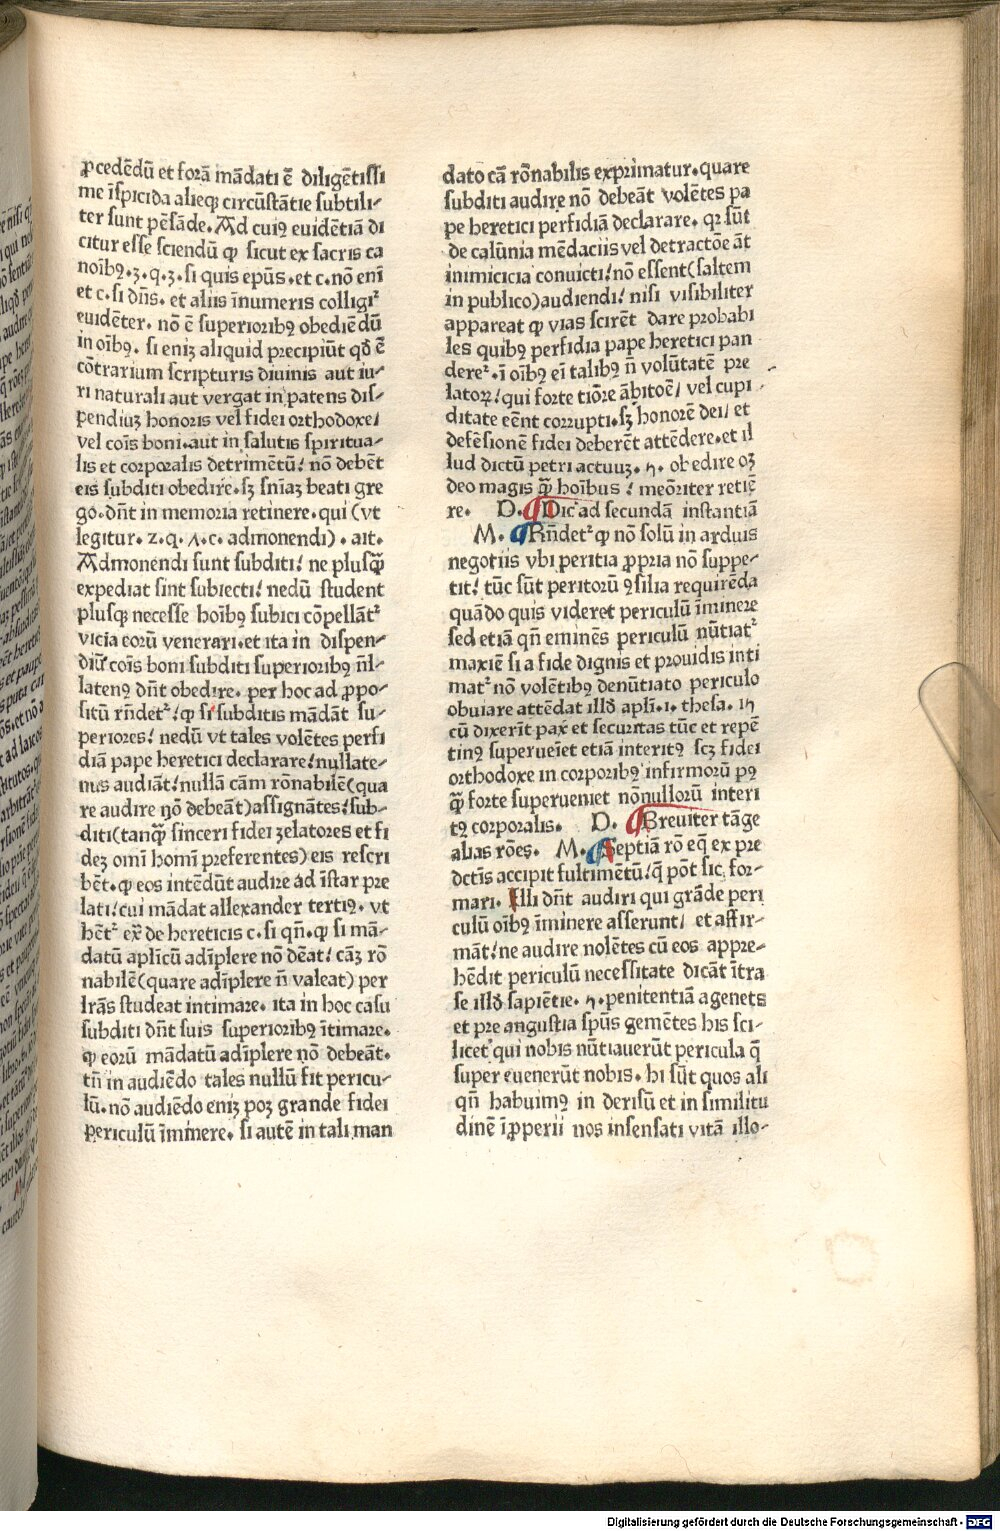 ꝓcedēdū et forā mādati ē diligētissi
me īspiciēda alieqꝫ circūstātie subtili⸗
ter sunt pēsāde. Ad cuiꝰ euidētiā di
citur esse sciendū ꝙ sicut ex sacris ca
noībꝰ.3.q.3.si quis epūs.et c.nō enī
et c.si dn̄s. et aliis īnumeris colligiꝛ
euidēter. nō ē superioribꝰ obediēdū
in oībꝰ. si eniꝫ aliquid precipiūt qd̄ ē
cōtrarium scripturis diuinis aut iu⸗
ri naturali aut vergat in patens dis⸗
pendiuꝫ honoris vel fidei orthodoxe/
vel cōis boni.aut in salutis spiritua⸗
lis et corporalis detrimētū: nō debēt
eis subditi obedire.sꝫ sn̄iaꝫ beati gre
go.dn̄t in memoria retinere.qui (vt
legitur.2.q.7.c. admonendi). ait.
Admonendi sunt subditi: ne plusꝙ̄
expediat sint subiecti: nedū student
plusqꝫ necesse hoībꝰ subici cōpellātꝛ
vicia eorū venerari.et ita in dispen⸗
diū cōis boni subditi superioribꝰ n̄l⸗
latenꝰ dn̄t obedire. per hoc ad ꝓpo⸗
sitū rn̄detꝛ: ꝙ si subditis mādāt su⸗
periores: nedū vt tales volētes perfi
diā pape heretici declarare: nullate⸗
nus audiāt: nullā cām rōnabilē(qua
re audire nō debeāt)assignātes: sub⸗
diti(tanꝙ̄ sinceri fidei zelatores et fi
deꝫ omī homī preferentes) eis rescri
bēt.ꝙ eos intēdūt audire ad īstar pre
lati: cui mādat allexander tertiꝰ. vt
hētꝛ ex̄ de hereticis c.si qn̄.ꝙ si mā⸗
datū aplīcū adīplere nō dēat: cāꝫ rō
nabilē(quare adīplere n̄ valeat) per
lrās studeat intimare. ita in hoc casu
subditi dn̄t suis superioribꝰ ītimare.
ꝙ eorū mādatū adīplere nō debeāt.
tn̄ in audiēdo tales nullū fit pericu⸗
lū. nō audiēdo eniꝫ poꝫ grande fidei
periculū īminere. si autē in tali man
dato cā rōnabilis exprimatur.quare
subditi audire nō debeāt volētes pa
pe heretici perfidiā declarare. qꝛ sūt
de calūnia mēdaciis vel detractōe āt
inimicicia conuicti: nō essent(saltem
in publico)audiendi: nisi visibiliter
appareat ꝙ vias scirēt dare probabi
les quibꝰ perfidia pape heretici pan
dereꝛ. ī oībꝰ eī talibꝰ n̄ volūtatē pre
latoꝝ: qui forte tiōre ābitōe/ vel cupi
ditate eēnt corrupti.sꝫ honorē dei/ et
defēsionē fidei deberēt attēdere.et il
lud dictū petri actuuꝫ. 5. obedire oꝫ
deo magis ꝙ̄ hoībus: meōriter retiē
re. D. Dic ad secundā instantiā
M. Rn̄detꝛ ꝙ nō solū in arduis
negotiis vbi peritia ꝓpria nō suppe⸗
tit: tūc sūt peritorū ꝯsilia requirēda
quādo quis videret periculū īminere
sed etiā qn̄ eminēs periculū nūtiatꝛ
maxiē si a fide dignis et prouidis inti
matꝛ nō volētibꝰ denūtiato periculo
obuiare attēdat illd̄ apli. 1. thesa. 15
cū dixerīt pax et securitas tūc et repē
tinꝰ superueīet etiā interitꝰ scꝫ fidei
orthodoxe in corporibꝰ infirmorū pꝰ
ꝙ̄ forte superueniet nōnullorū interi
tꝰ corporalis. D. Breuiter tāge
alias rōes. M. Septiā rō eqͥ ex pre
dctīs accipit fultimētū: q̄ pōt sic for⸗
mari. Illi dn̄t audiri qui grāde peri
culū oībꝰ īminere asserunt/ et affir⸗
māt: ne audire nolētes cū eos appre⸗
hēdit periculū necessitate dicāt ītra
se illd̄ sapiētie. 5. penitentiā agenets
et pre angustia spūs gemētes his sci⸗
licet qui nobis nūtiauerūt pericula q̄
super euenerūt nobis. hi sūt quos ali
qn̄ habuimꝰ in derisū et in similitu
dinē īꝓperii nos insensati vitā illo⸗
Digitalisierung gefördert durch die Deutsche Forschungsgemeinschaft - DFG